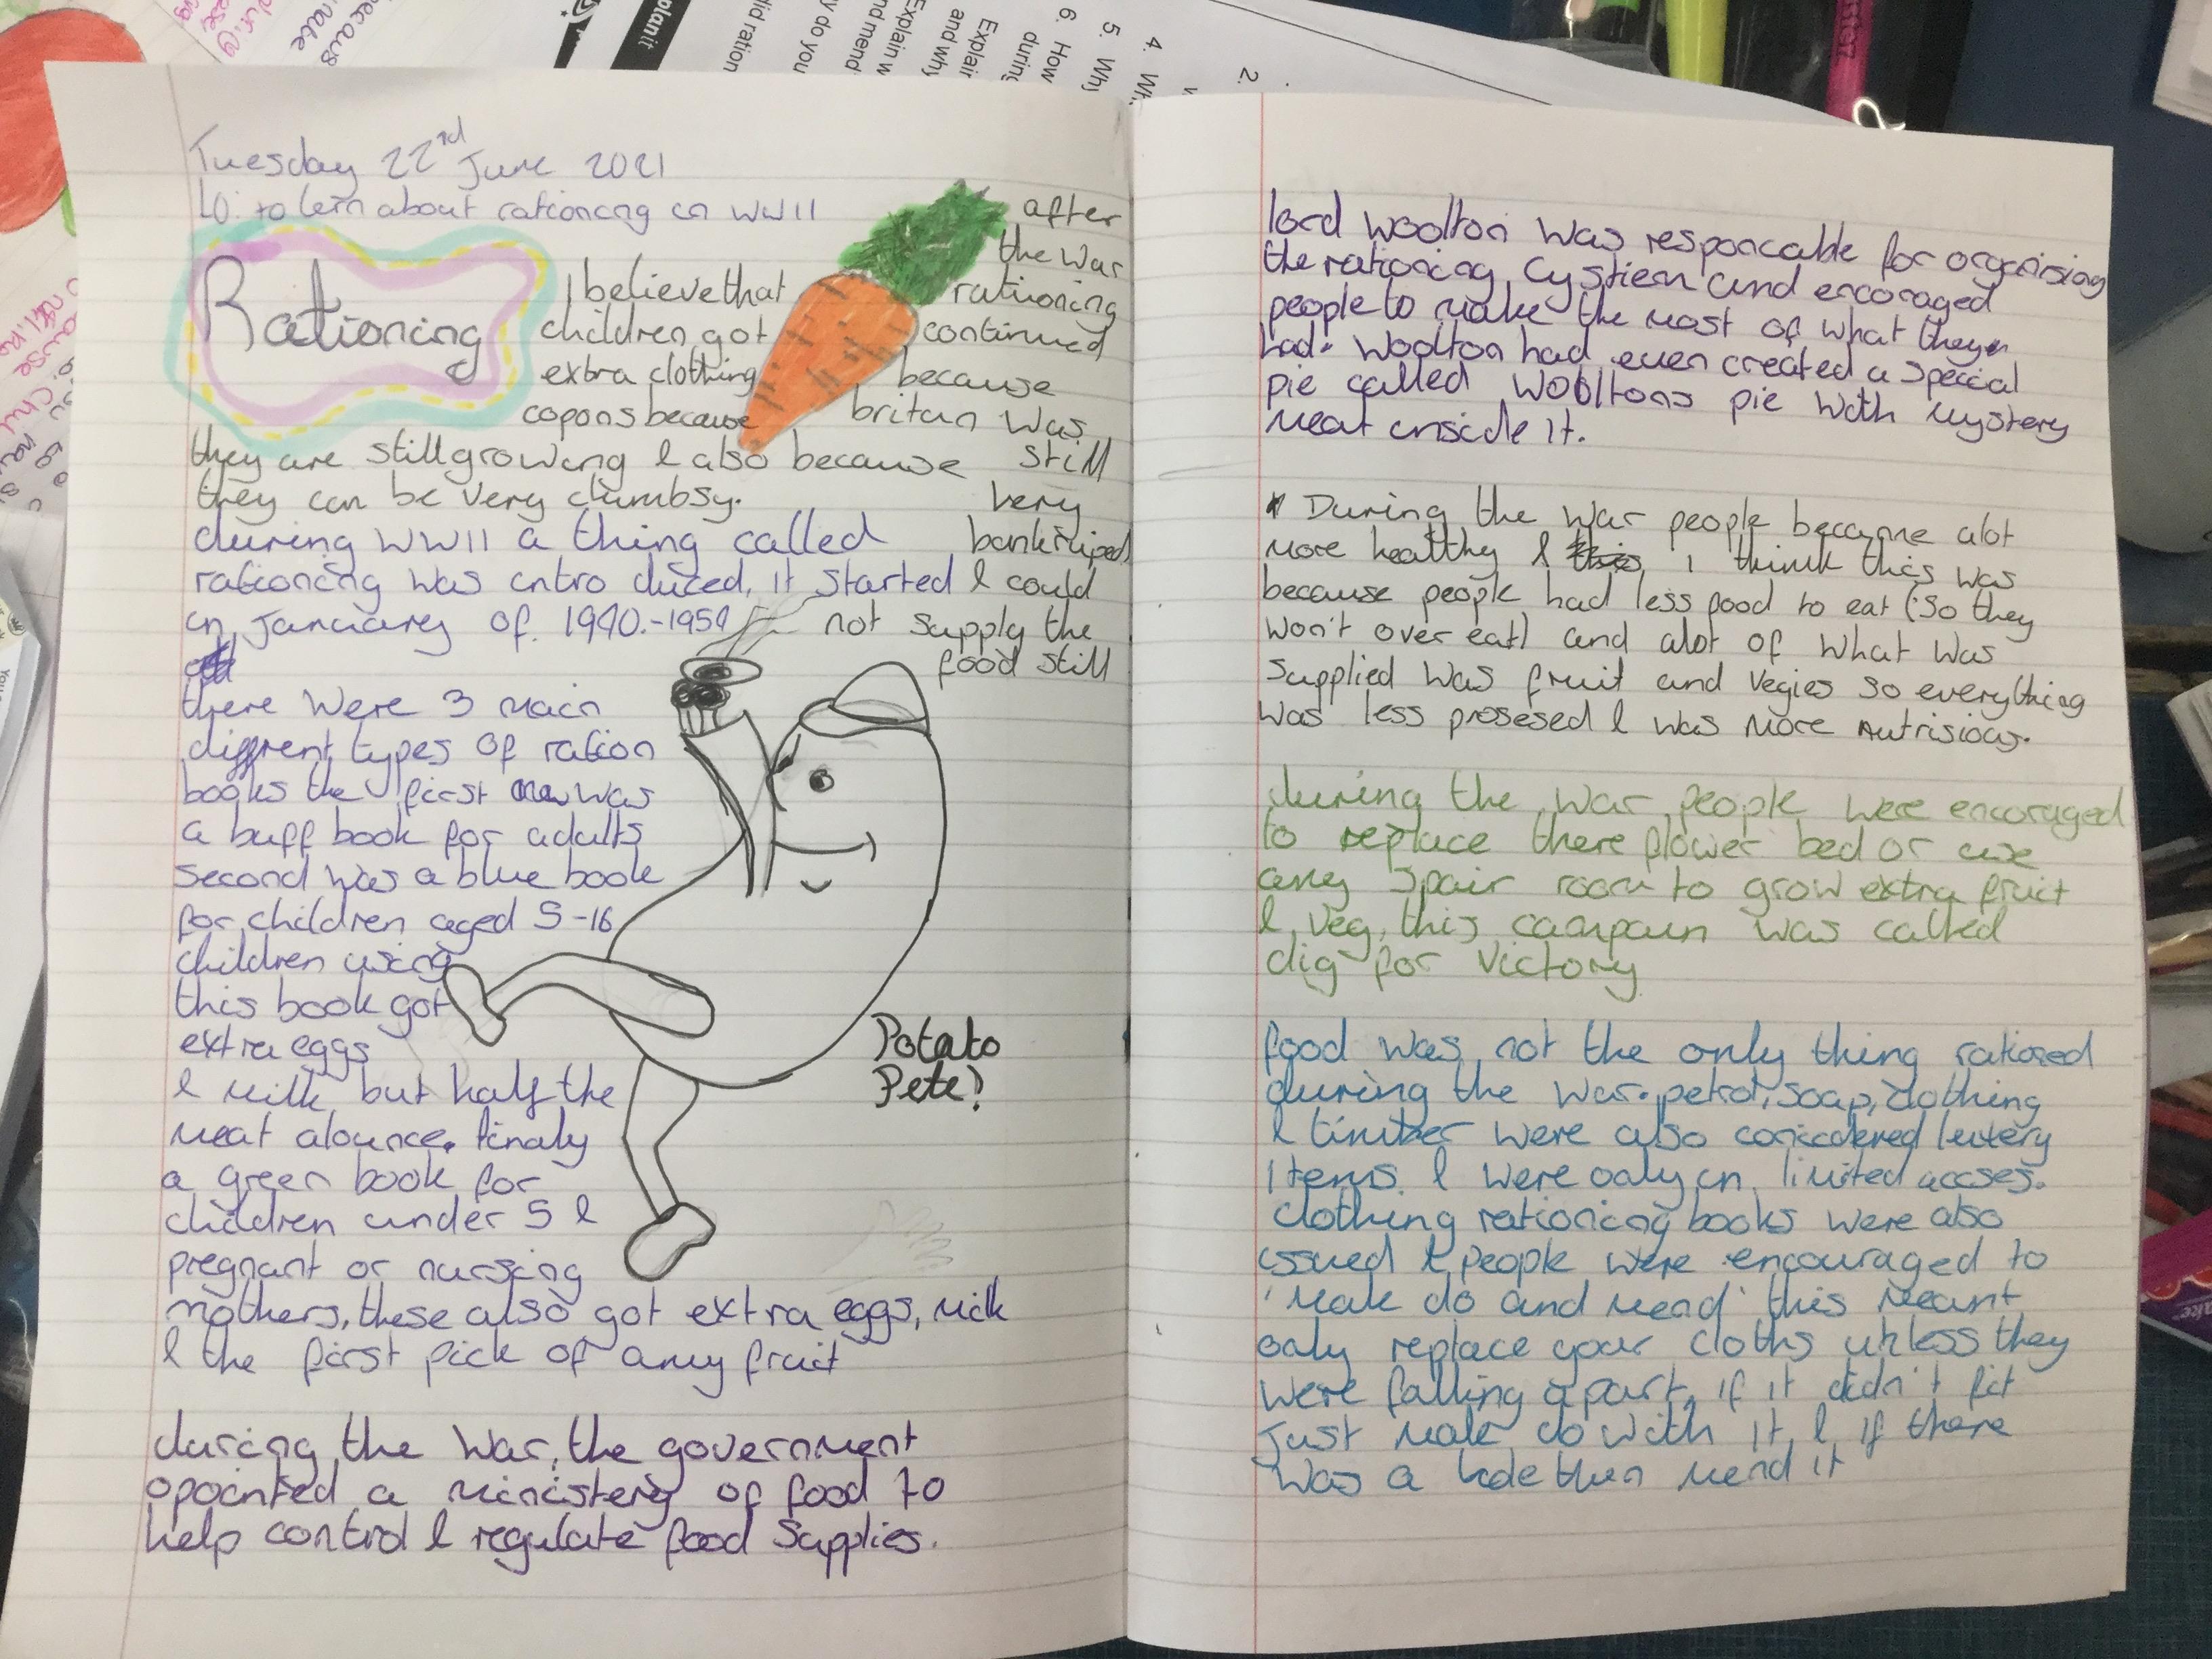 Tuesday 22nd June 2021
LO: to lern about rationing in WWII
Rationing
I believe that
children got
extra clothing
copons because
they are still growing & also because
they can be very clumbsy.
after
the war
rationing
continued
because
britan was
still
very
bankruped
& could
not supply the
food still
during WWII a thing called
rationing was intro duced, it started
in january of 1940.-1954
there were 3 main
diffrent types of ration
books the first was
a buff book for adults
second was a blue book
for children aged 5-16
children using
this book got
extra eggs
& milk but half the
meat alounce. finaly
a green book for
children under 5 &
pregnant or nursing
mothers, these also got extra eggs, milk
& the first pick of any fruit
Potato
Pete!
during the war, the government
opointed a ministery of food to
help control & regulate food supplies.
lord woolton was responcable for organising
the rationing cystiem and encoraged
people to make the most of what they
had. Woolton had even created a special
pie called wooltons pie with mystery
meat inside it.
During the war people became alot
more healthy & I think this was
because people had less food to eat (so they
won't over eat) and alot of what was
supplied was fruit and vegies so everything
was less prosesed & was more nutrisious.
during the war people were encoraged
to replace there flower bed or use
any spair room to grow extra fruit
& veg, this campain was called
dig for victory
food was not the only thing rationed
during the war. petrol, soap, clothing
& timber were also concidered luxery
items & were only in limited accses.
clothing rationing books were also
issued & people were encouraged to
'make do and mend' this meant
only replace your cloths unless they
were falling apart, if it didn't fit
just make do with it & if there
was a hole then mend it
planit
2.
4. Wh
5. Why
6. How
during
Explain
and why
Explain w
nd mend
y do you
did ration